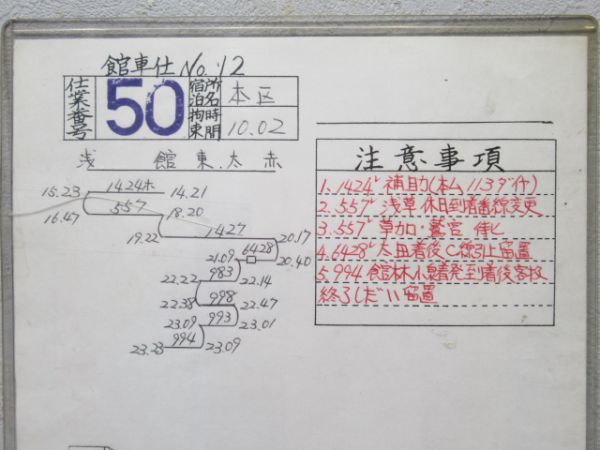 館車仕 No.12
仕業番号 50 宿泊所名 本区
拘束時間 10.02
浅 館 東 太 赤
15.23 1424ホ 14.21
16.47 557 18.20
19.22 1427 20.17
21.09 6428 20.40
22.22 983 22.14
22.38 998 22.47
23.09 993 23.01
23.23 994 23.09
注意事項
1.1424レ 補助(本ム 113ダイヤ)
2.557レ 浅草 休日到着番線変更
3.557レ 草加・鷲宮 待ヒ
4.6428レ 太田着後 C線引上留置
5.994 館林 小泉着発到着後客扱
終了しだい留置